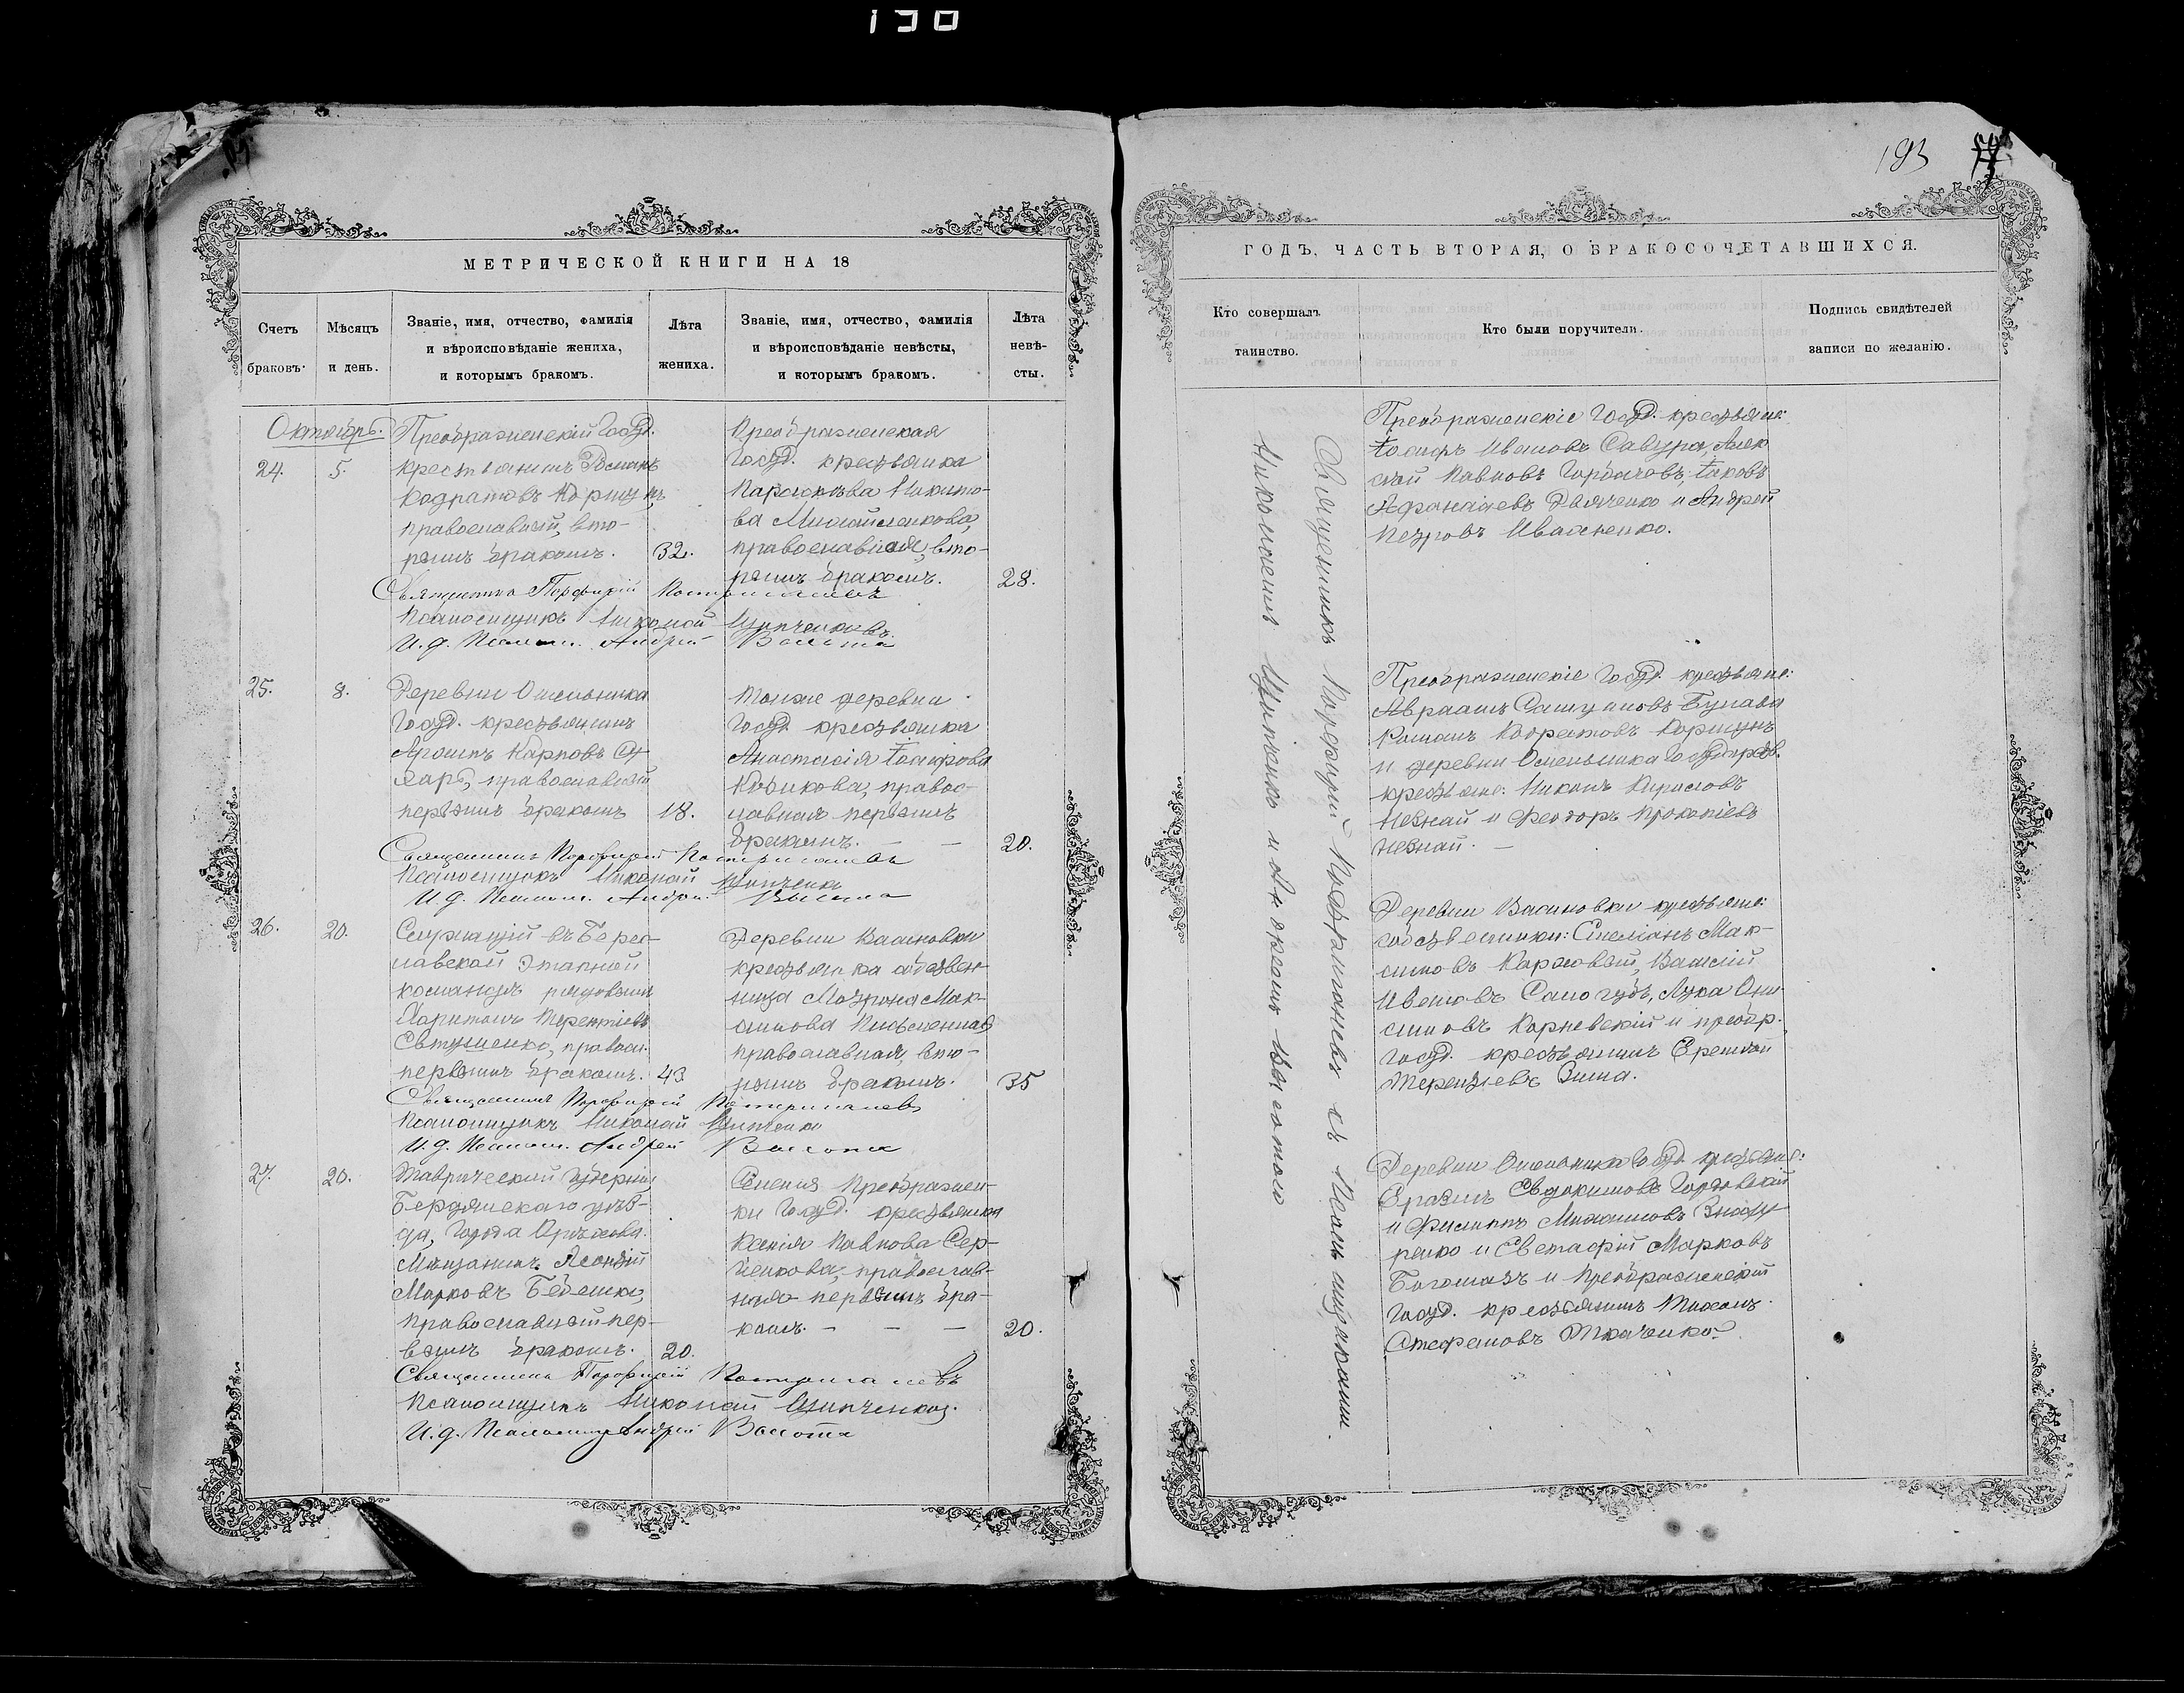 130
193
МЕТРИЧЕСКОЙ КНИГИ НА 18
Счетъ браковъ.
Мѣсяцъ и день.
Званіе, имя, отчество, фамилія
и вѣроисповѣданіе жениха,
и которымъ бракомъ.
Лѣта жениха.
Званіе, имя, отчество, фамилія
и вѣроисповѣданіе невѣсты,
и которымъ бракомъ.
Лѣта невѣ-
сты.
Октябрь.
24.
5.
Преображенскій Госуд.
крестьянинъ Романъ
Кодратовъ Коршунъ,
православный, вто-
рымъ бракомъ.
32.
Преображенская
Госуд. крестьянка
Параскева Никито-
ва Михайленкова,
православная, вто-
рымъ бракомъ.
28.
Священникъ Порфирій
Псаломщикъ Николай Ципченковъ.
И. д. Псалом. Андрей
25.
8.
Деревни Омельника
Госуд. крестьянинъ
Карповъ
православный
первымъ бракомъ
18.
Тойже деревни
Госуд. крестьянка
Анастасія Іосифова
правос-
лавная первымъ
бракомъ.
20.
Священникъ Порфирій
Псаломщикъ Николай Ципченко
И. д. Псалом. Андрей
26.
20.
Служащій въ Берис-
лавской Этапной
командѣ рядовымъ
Харитонъ Терентіевъ
Евтушенко, правосл.
первымъ бракомъ.
43.
Деревни Васиновки
крестьянка собствен-
ница Матрона Мак-
симова
православная, вто-
рымъ бракомъ.
35
Священникъ Порфирій
Псаломщикъ Николай Ципченко
И. д. Псалом. Андрей
27.
20.
Таврической Губерніи,
Бердянскаго уѣз-
да, Города Орѣхова
Мѣщанинъ Леонтій
Марковъ
православный пер-
вымъ бракомъ.
20.
Селенія Преображен-
ки Госуд. крестьянка
Ксенія Павлова Сер-
гіенкова, православ-
ная первымъ бра-
комъ.
20.
Священникъ Порфирій
Псаломщикъ Николай Ципченко.
И. д. Псаломщ. Андрей
ГОДЪ, ЧАСТЬ ВТОРАЯ, О БРАКОСОЧЕТАВШИХСЯ.
Кто совершалъ
таинство.
Кто были поручители.
Подпись свидѣтелей
записи по желанію.
Священникъ Порфирій съ Псаломщиками
Николаемъ Ципченко и Андреемъ
Преображенскіе Госуд. крестьяне:
Іосифъ Ивановъ Савура, Алек
сѣй Павловъ Горбачевъ, Іаковъ
Афанасіевъ Дьяченко и Андрей
Петровъ Иващенко.
Преображенскіе Госуд. крестьяне:
Авраамъ
Романъ Кодратовъ Коршунъ
и деревни Омельника Государств.
крестьяне: Никонъ Кириловъ
Незнай и Феодоръ Прокопіевъ
Незнай.
Деревни Васиновки крестьяне
собственники: Емеліанъ Мак-
симовъ Василій
Ивановъ Сапогубъ, Лука Они
симовъ Корневскій и преобр.
Госуд. крестьянинъ Еремѣй
Терентіевъ Зима.
Деревни Омельника Госуд. крестьяне:
Евдокимовъ
и Филиппъ Михаиловъ
ренко и Евстафій Марковъ
Богомазъ и Преображенскій
Госуд. крестьянинъ Тихонъ
Стефановъ Ткаченко.